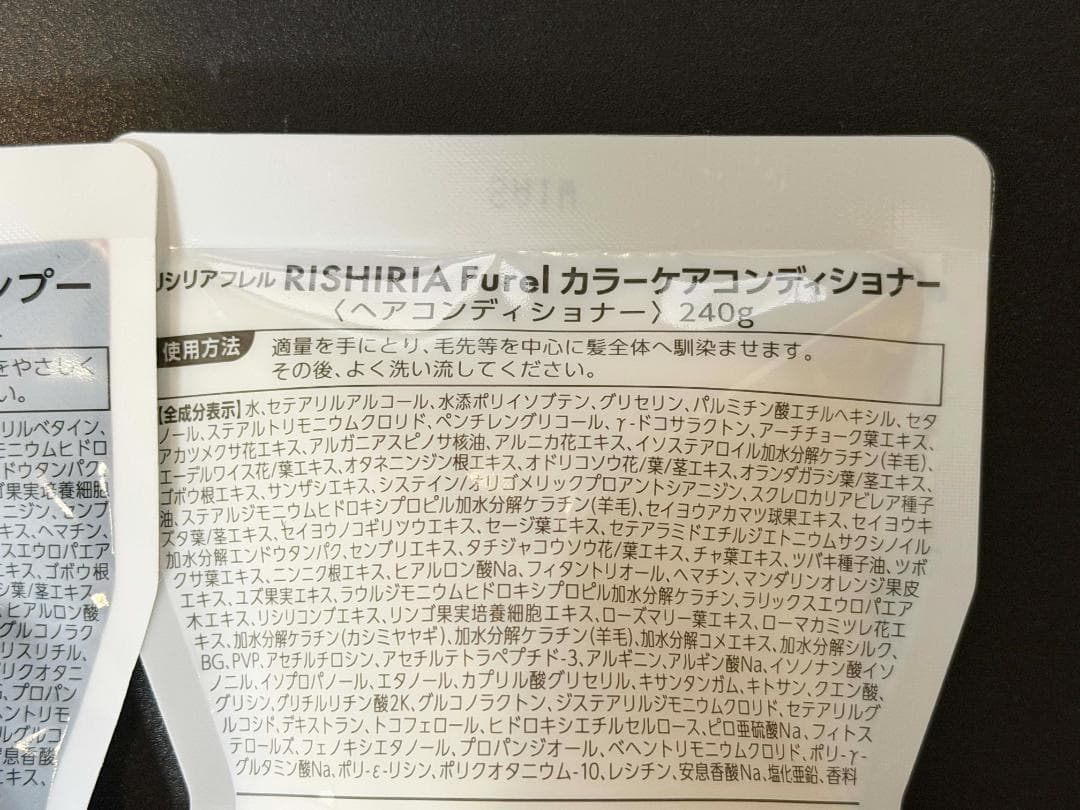 リシリアフレル RISHIRIA Furel カラーケアコンディショナー
〈ヘアコンディショナー〉 240g
使用方法
適量を手にとり、毛先等を中心に髪全体へ馴染ませます。
その後、よく洗い流してください。
【全成分表示】水、セテアリルアルコール、水添ポリイソブテン、グリセリン、パルミチン酸エチルヘキシル、セタ
ノール、ステアルトリモニウムクロリド、ペンチレングリコール、γ-ドコサラクトン、アーチチョーク葉エキス、
アカツメクサ花エキス、アルガニアスピノサ核油、アルニカ花エキス、イソステアロイル加水分解ケラチン(羊毛)、
エーデルワイス花/葉エキス、オタネニンジン根エキス、オドリコソウ花/葉/茎エキス、オランダガラシ葉/茎エキス、
ゴボウ根エキス、サンザシエキス、システイン/オリゴメリックプロアントシアニジン、スクレロカリアビレア種子
油、ステアルジモニウムヒドロキシプロピル加水分解ケラチン(羊毛)、セイヨウアカマツ球果エキス、セイヨウキ
ズタ葉/茎エキス、セイヨウノコギリソウエキス、セージ葉エキス、セテアラミドエチルジエトニウムサクシノイル
加水分解エンドウタンパク、センブリエキス、タチジャコウソウ花/葉エキス、チャ葉エキス、ツバキ種子油、ツボ
クサ葉エキス、ニンニク根エキス、ヒアルロン酸Na、フィタントリオール、ヘマチン、マンダリンオレンジ果皮
エキス、ユズ果実エキス、ラウルジモニウムヒドロキシプロピル加水分解ケラチン、ラリックスエウロパエア
木エキス、リシリコンブエキス、リンゴ果実培養細胞エキス、ローズマリー葉エキス、ローマカミツレ花エ
キス、加水分解ケラチン(カシミヤヤギ)、加水分解ケラチン(羊毛)、加水分解コメエキス、加水分解シルク、
BG、PVP、アセチルチロシン、アセチルテトラペプチド-3、アルギニン、アルギン酸Na、イソノナン酸イソ
ノニル、イソプロパノール、エタノール、カプリル酸グリセリル、キサンタンガム、キトサン、クエン酸、
グリシン、グリチルリチン酸2K、グルコノラクトン、ジステアリルジモニウムクロリド、セテアリルグ
ルコシド、デキストラン、トコフェロール、ヒドロキシエチルセルロース、ピロ亜硫酸Na、フィトス
テロールズ、フェノキシエタノール、プロパンジオール、ベヘントリモニウムクロリド、ポリ-γ-
グルタミン酸Na、ポリ-ε-リシン、ポリクオタニウム-10、レシチン、安息香酸Na、塩化亜鉛、香料